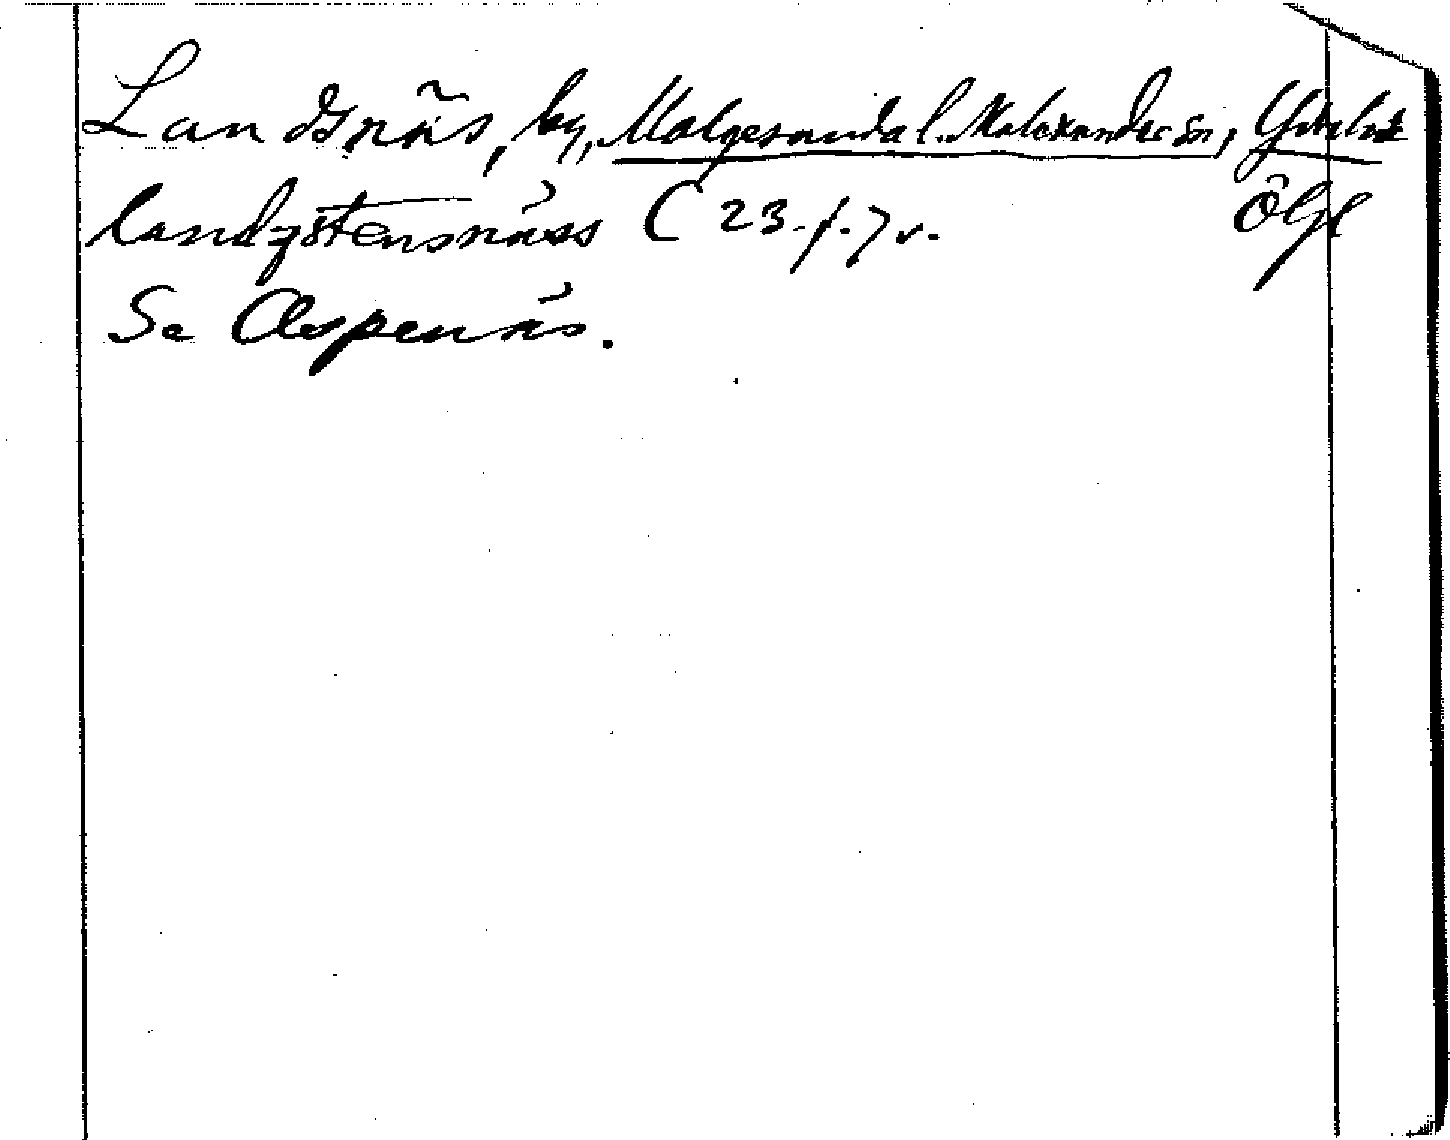 Landsnäs, by, Malgesanda l. Malexander sn, Ydre hd
landzstensnäss C 23. f. 7 v. ÖGl
Se Aspenäs.